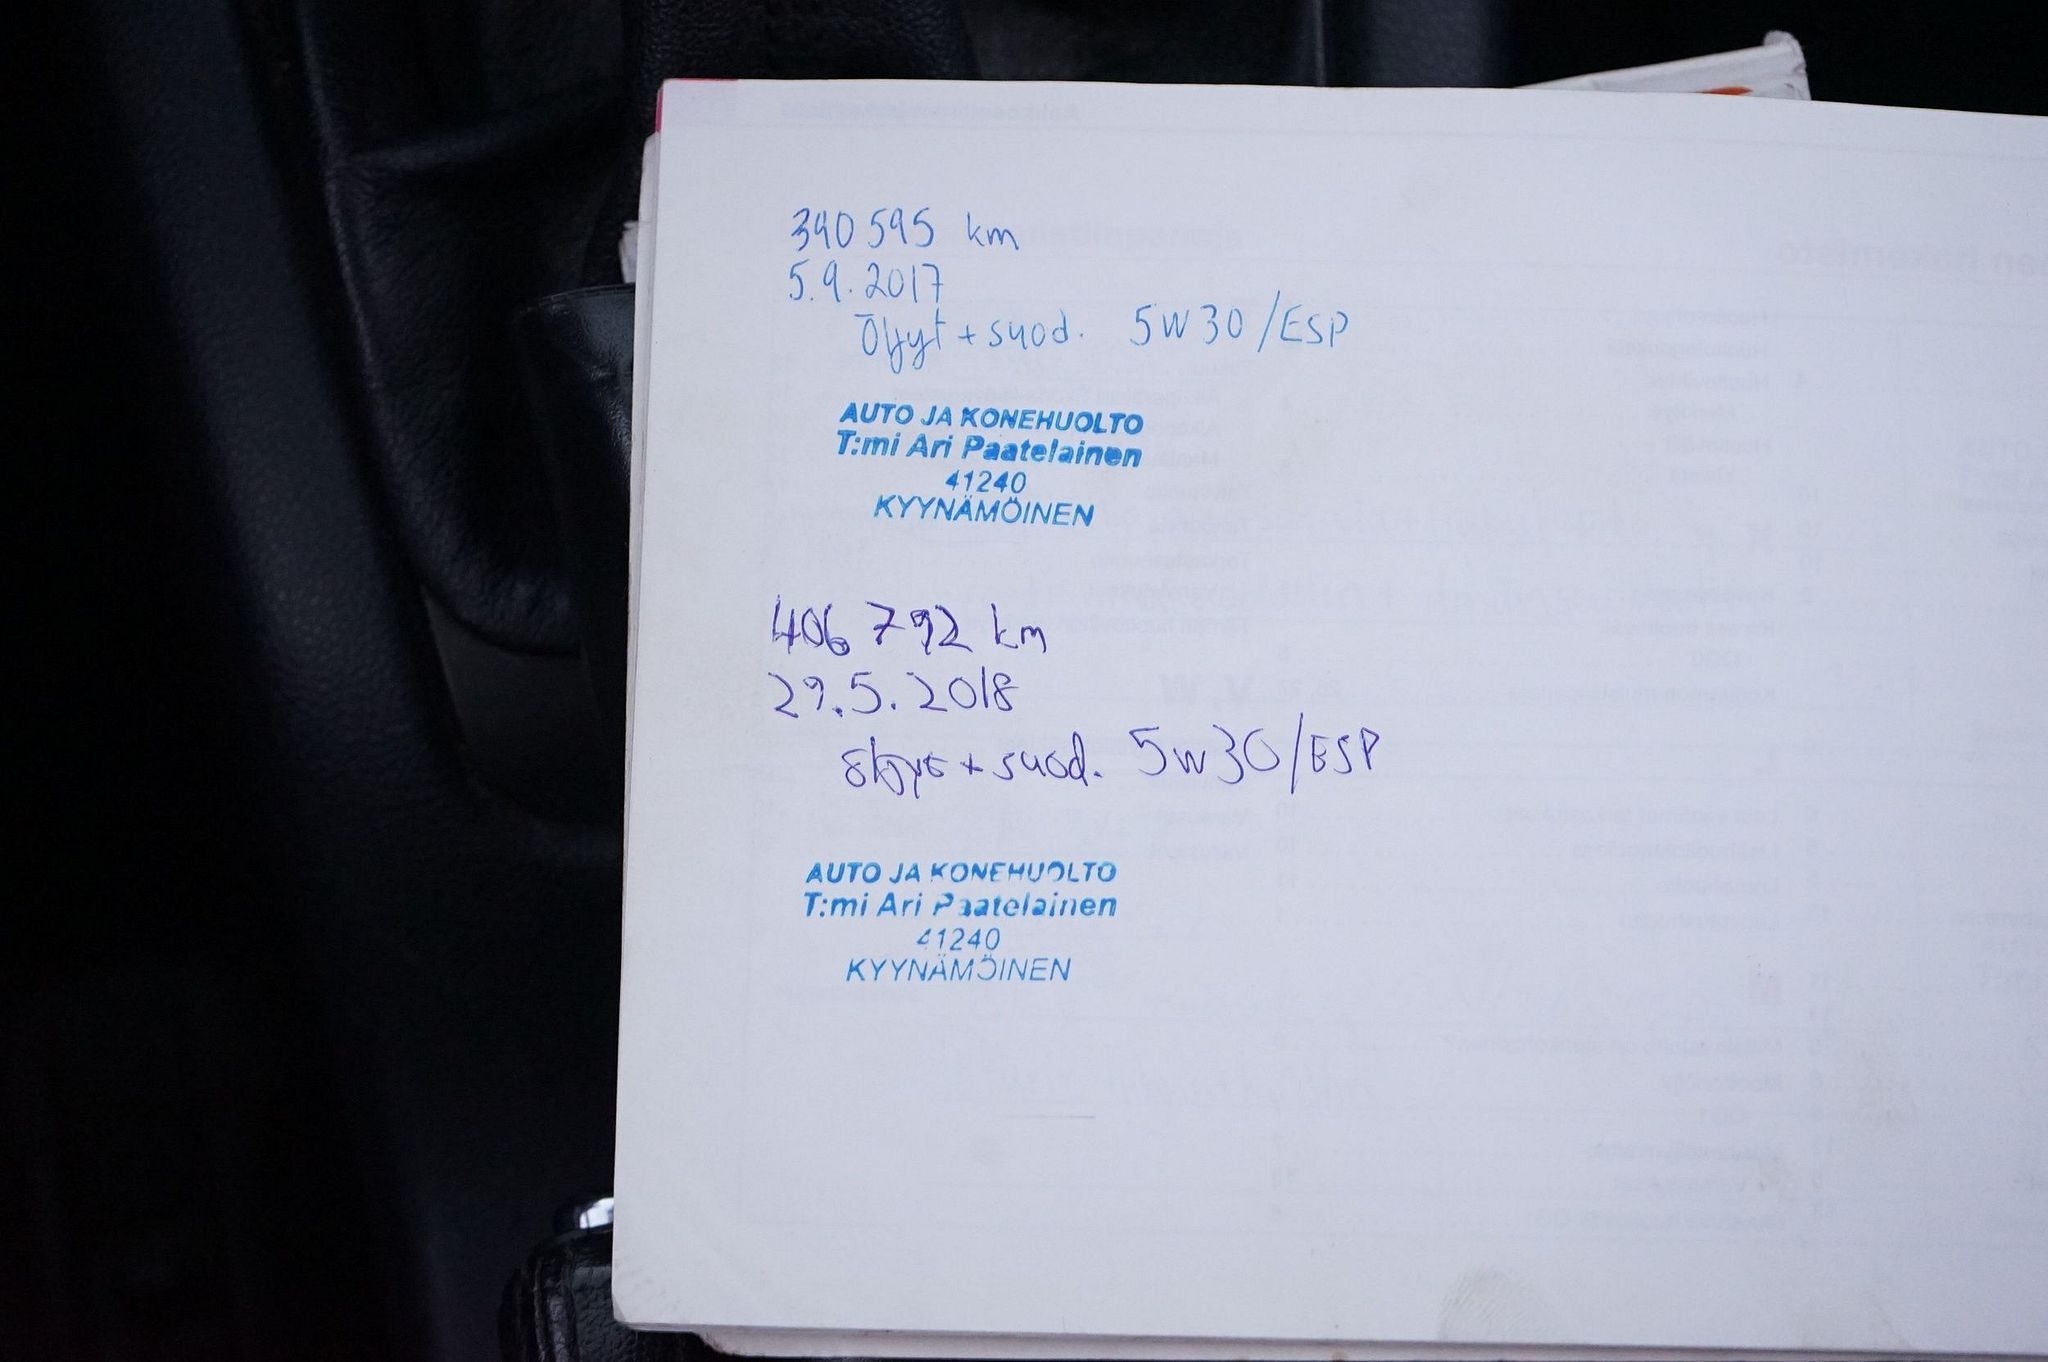 390 595 km
5.9.2017
Öljyt + suod. 5W30/ESP
AUTO JA KONEHUOLTO
T:mi Ari Paatelainen
41240
KYYNÄMÖINEN
406 792 km
29.5.2018
öljyt + suod. 5W30/ESP
AUTO JA KONEHUOLTO
T:mi Ari Paatelainen
41240
KYYNÄMÖINEN